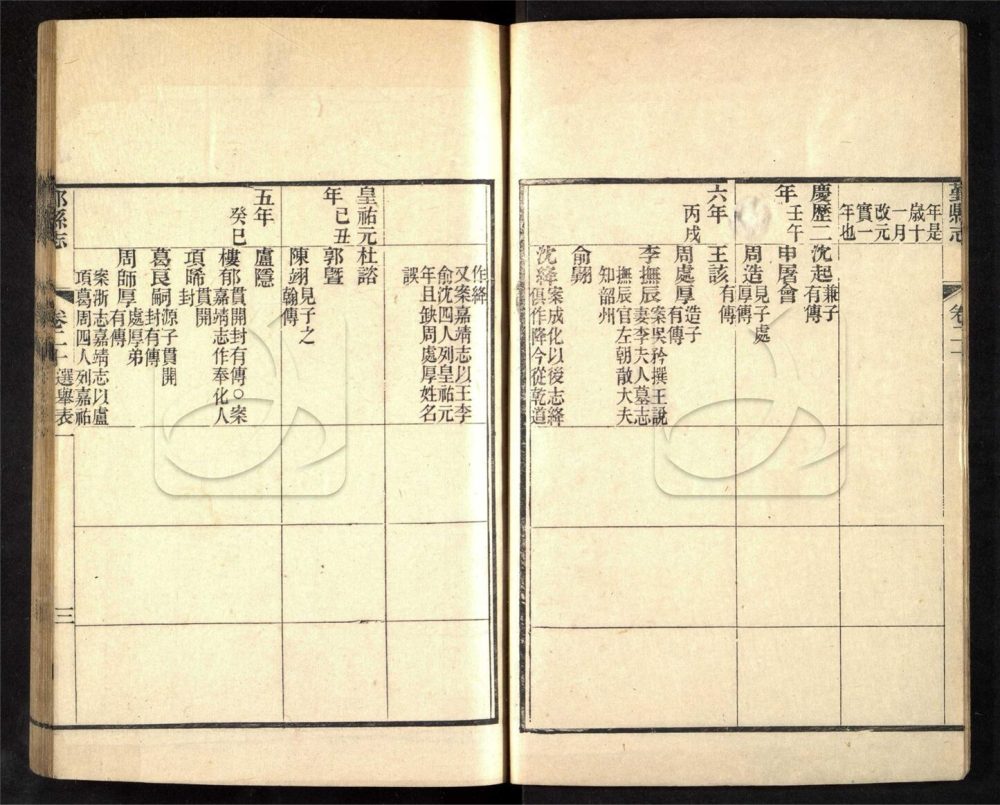 鄞縣志
卷二十
年是
歲十
一月
改元
實一
年也
慶歷二
年壬午
沈起兼子
有傳
申屠會
周造見子處
厚傳
六年
丙戌
王該有傳
周處厚造子
有傳
李撫辰案吳矜撰王說
妻李夫人墓志
撫辰官左朝散大夫
知韶州
俞翱
沈絳案成化以後志絳
俱作降今從乾道
作絳
又案嘉靖志以王李
俞沈四人列皇祐元
年且缺周處厚姓名
誤
皇祐元
年己丑
杜諮
郭曁
陳翊見子之
翰傳
五年
癸巳
盧隱
樓郁貫開封有傳○案
嘉靖志作奉化人
項晞貫開
封
葛良嗣源子貫開
封有傳
周師厚處厚弟
有傳
案浙志嘉靖志以盧
項葛周四人列嘉祐
鄞縣志
卷二十 選舉表一
三